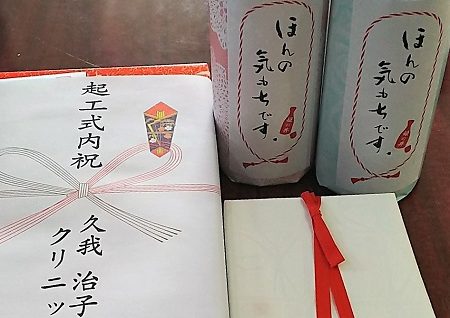 起工式内祝
久我 治子
クリニッ
ほんの
気もちです。
ほんの
気もちです。